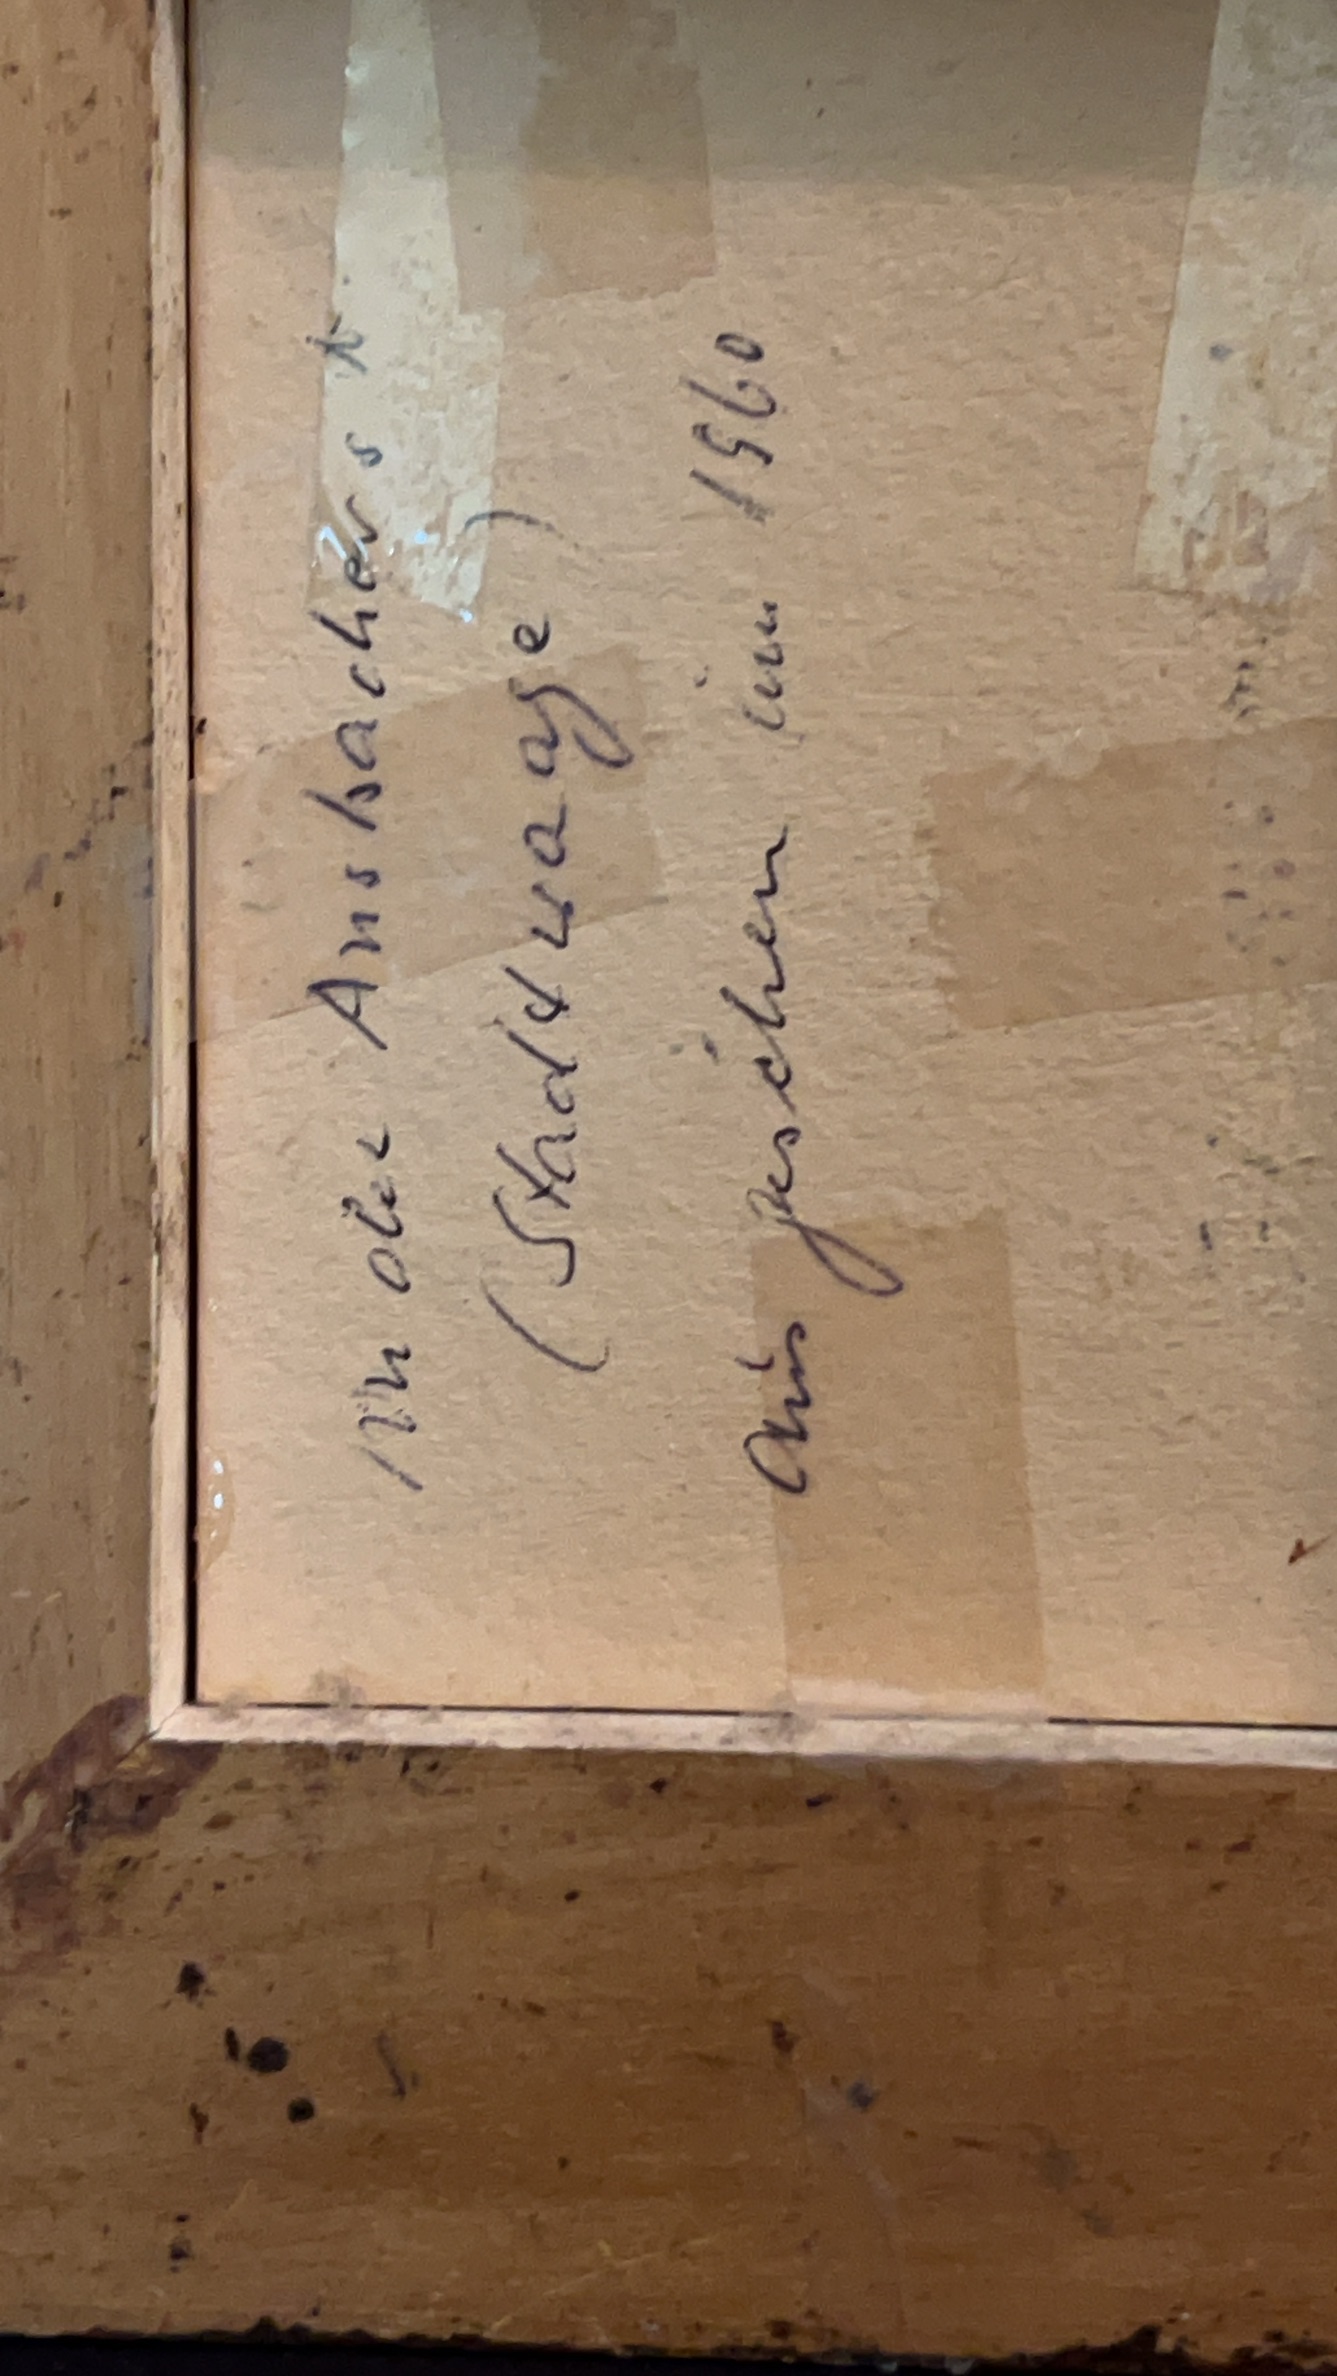 in der Ansbacherst
(Stadtwaage)
ausgesehen um 1960